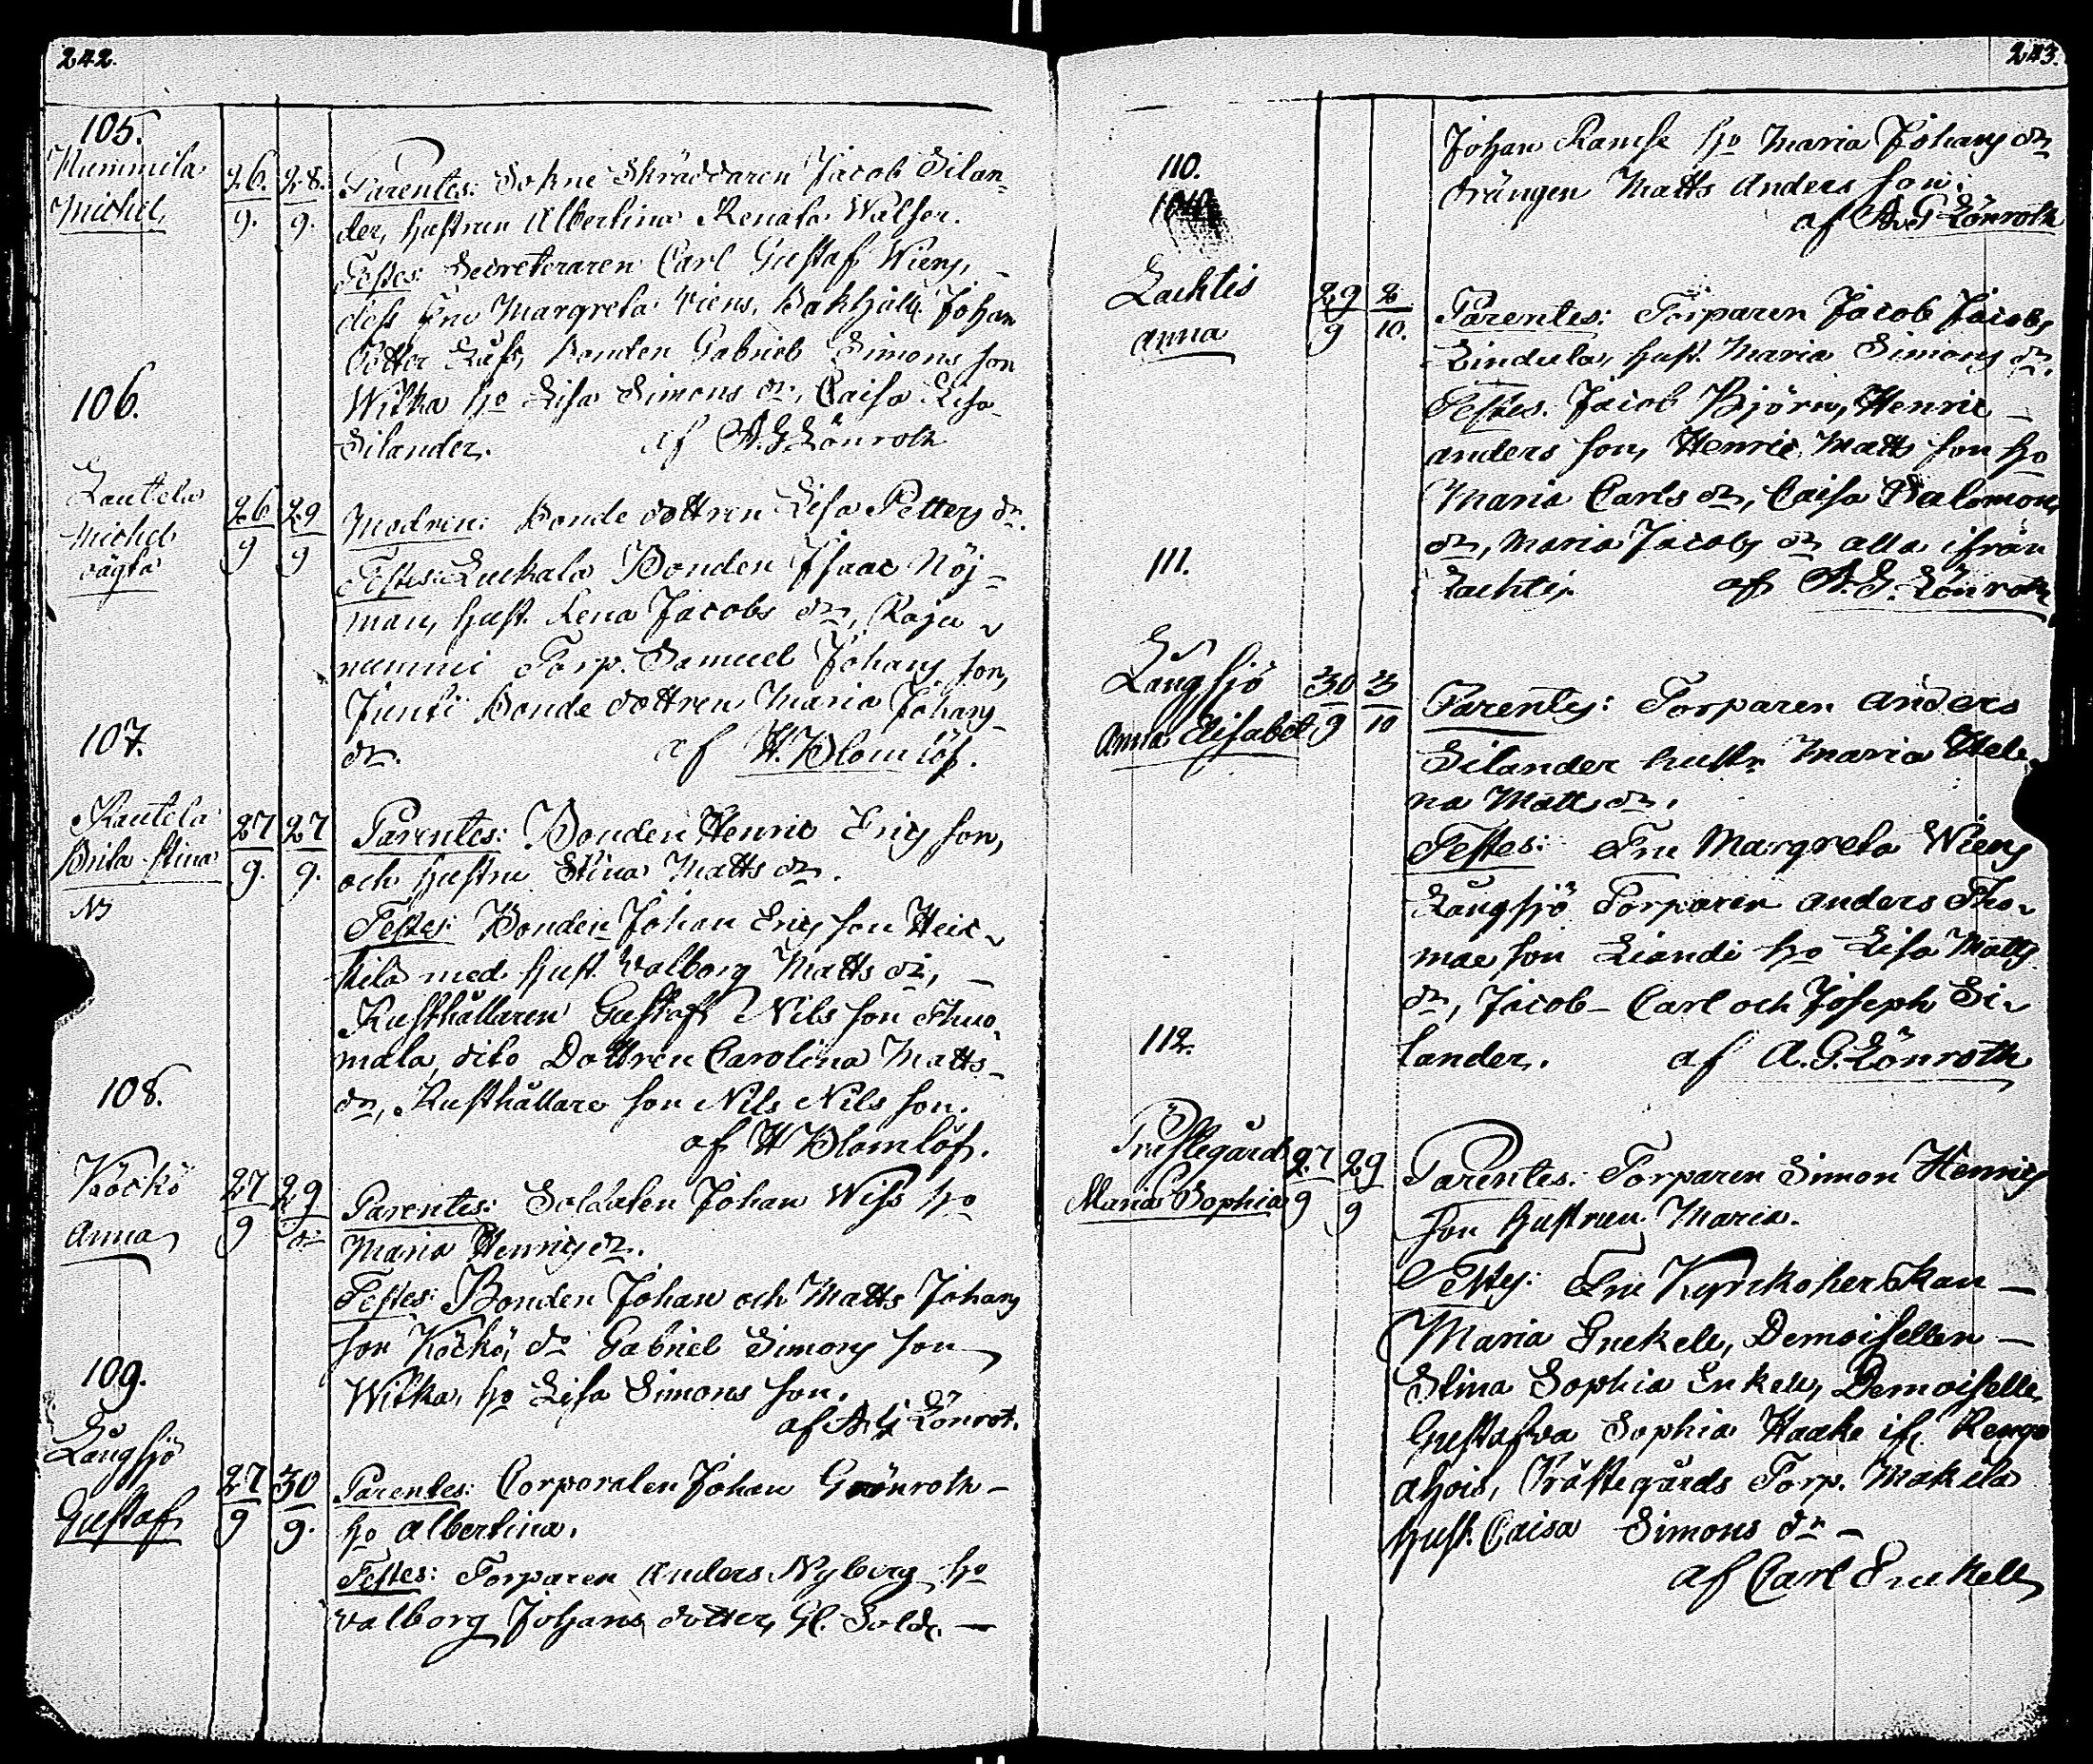 242.
105.
Nummila
Michel
26. 28.
9. 9.
Parentes: Sokne Skräddaren Jacob Silan-
der, hustrun Albertina Renata Walser.
Testes: Secreteraren Carl Gustaf Wiens,
dess Fru Margreta Wiens, Johan
Bonden Gabriel Simons son
Witka ho Lisa Simons dr, Caisa Lisa
Silander. af A.G. Lönroth
106.
Lautela
Michel
oägta
26 29
9 9
Modren: Bonde dottren Lisa Petters dr.
Testes: Luckala Bonden Isaac Nöj-
man, hust. Lena Jacobs dr, Raju-
nummi Torp. Samuel Johans son,
Junti Bonde dottren Maria Johans
dr. af H. Blomlöf.
107.
Rautela
Brita Stina
NB
27 27
9. 9.
Parentes: Bonden Henric Erics son,
och hustru Stina Matts dr.
Testes: Bonden Johan Erics son Heic-
kilä med hust. Valborg Matts dr, —
Rusthållaren Gustaf Nils son Thuo-
mala, dito Dottren Carolina Matts-
dr, Rusthållare son Nils Nils son.
af H Blomlöf.
108.
Köckö
Anna
27 29
9
Parentes: Soldaten Johan Wiss ho
Maria Henrics dr.
Testes: Bonden Johan och Matts Johans
son Köckö, do Gabriel Simons son
Witka, ho Lisa Simons son.
af A.G Lönrot.
109.
Långsjö
Gustaf
27 30
9 9.
Parentes: Corporalen Johan Grönroth —
ho Albertina.
Testes: Torparen Anders Nyberg ho
Valborg Johans dotter, Gl. Sold. —
243.
Johan Ramse ho Maria Johans dr
drängen Matts Anders son.
af A.G Lönroth
110.
Lachtis
Anna
29 2
9 10.
Parentes: Torparen Jacob Jacobs
Lindula, hust. Maria Simons dr.
Testes. Jacob Björn, Henric —
Anders son, Henric Matts son ho
Maria Carls dr, Caisa Salomons
dr, Maria Jacobs dr alla ifrån
Lachtis. af A.G. Lönroth
111.
Långsjö
Anna Elisabet
30 3
9 10
Parentes: Torparen Anders
Silander hustr Maria Hele-
na Matts dr.
Testes: Fru Margreta Wiens
Långsjö Torparen Anders Tho-
mae son Liandi ho Lisa Matts
dr, Jacob – Carl och Joseph Si-
lander. af A.G. Lönroth
112.
Prestegård
Maria Sophia
27 29
9 9
Parentes: Torparen Simon Henrics
son hustrun Maria.
Testes: Fru Kyrckoherskan —
Maria Enckell, Demoisellen —
Stina Sophia Enkell, Demoiselle
Gustafva Sophia Haake ifr. Rengo
ahois, Prästegårds Torp. Makilä
hust. Caisa Simons dr —
af Carl Enckell